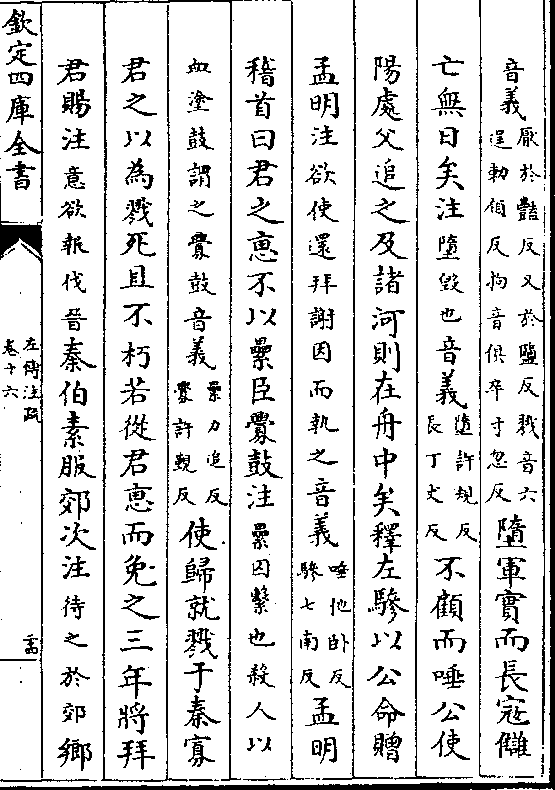 音義厭於豔反又於鹽反戮音六逞勑領反拘音俱卒寸忽反墮軍實而長寇讎
亡無日矣注墮毀也音義墮許規反長丁丈反不顧而唾公使
陽處父追之及諸河則在舟中矣釋左驂以公命贈
孟明注欲使還拜謝因而執之音義唾他卧反驂七南反孟明
稽首曰君之惠不以纍臣釁鼓注纍囚繫也殺人以
血塗鼓謂之釁鼓音義纍力追反釁許覲反使歸就戮于秦寡
君之以為戮死且不朽若從君惠而免之三年將拜
君賜注意欲報伐晉秦伯素服郊次注待之於郊鄉
欽定四庫全書
左傳注疏
卷十六